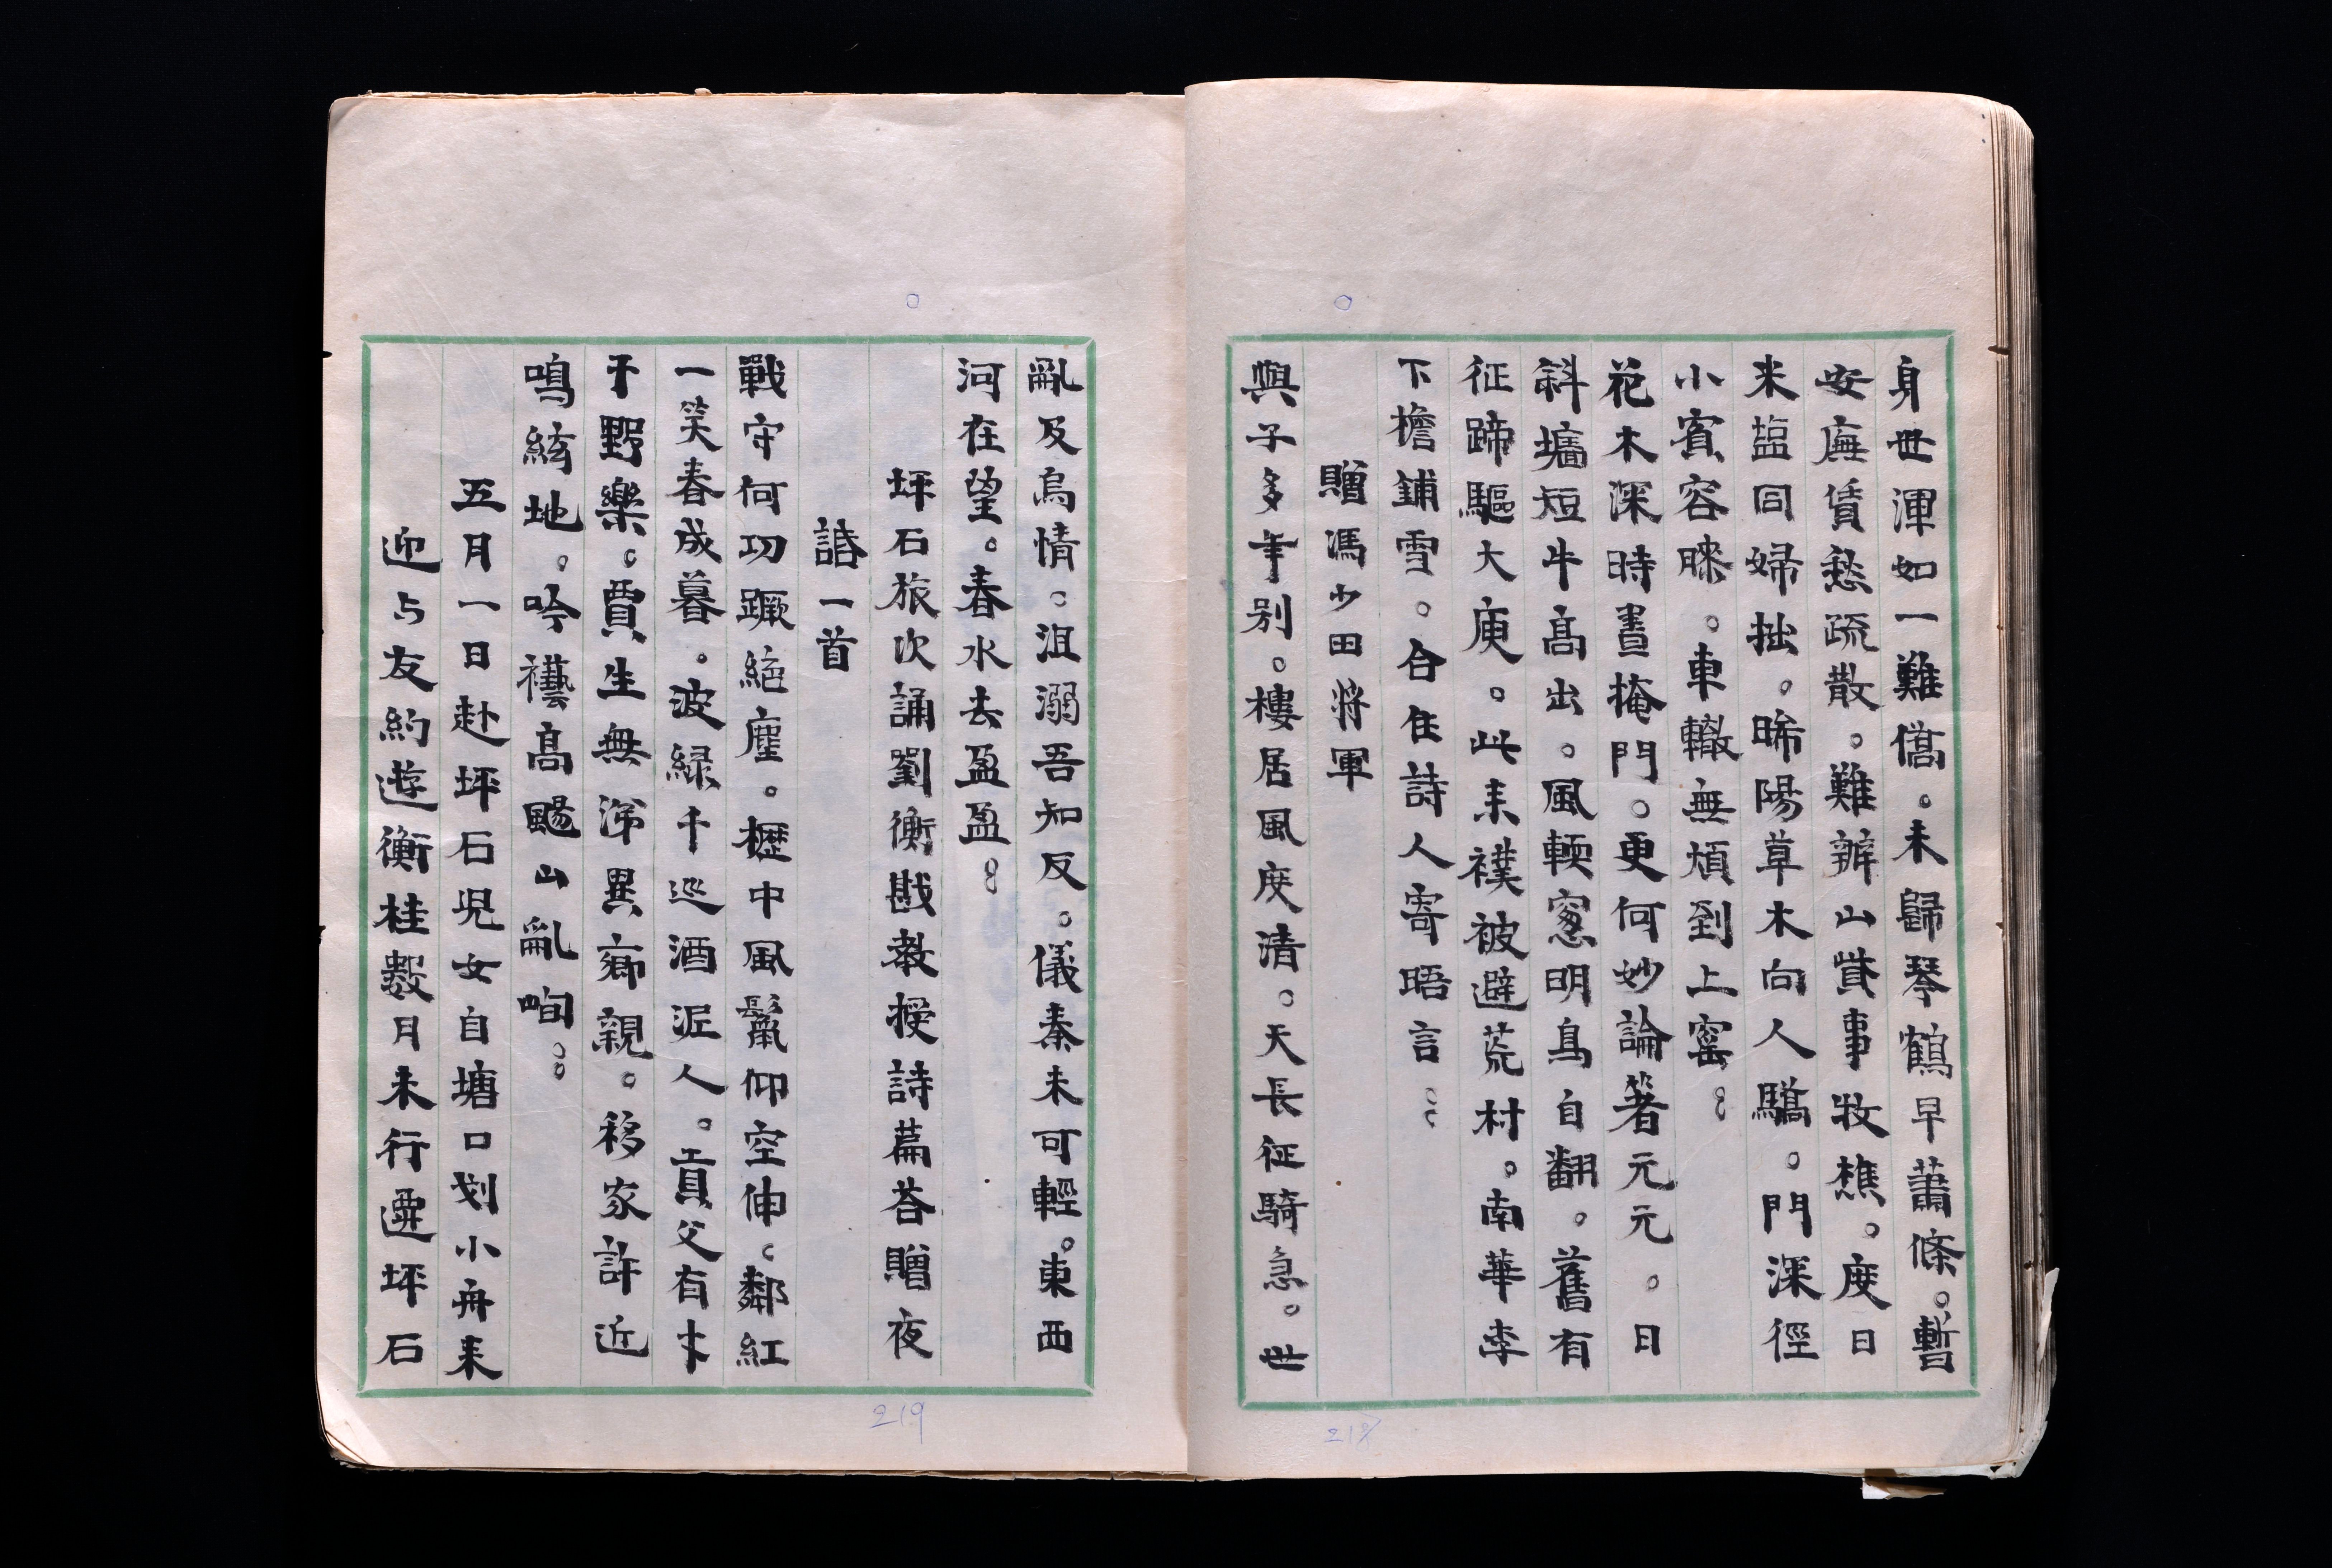 身世渾如一難僑。未歸琴鶴早蕭條。暫
安廡賃愁疏散。難辦山貲事牧樵。度日
米鹽同婦拙。晞陽草木向人驕。門深徑
小賓容睞。車轍無煩到上窰。
花木深時晝掩門。更何妙論箸元元。日
斜墻短牛高出。風輭窻明鳥自翻。舊有
征蹄驅大庾。此来襆被避荒村。南華李
下檐鋪雪。合住詩人寄晤言。
贈馮少田將軍
與子多年别。樓居風度清。天長征騎急。世
亂及烏情。沮溺吾知反。儀秦未可輕。東西
河在望。春水去盈盈。
坪石旅次誦劉衡戡教授詩萹荅贈夜
誥一首
戰守何功蹶絕塵。櫪中風鬣仰空伸。鄰紅
一笑春成暮。波緑千巡酒泥人。貢父有才
于野樂。賈生無涕異鄉親。移家許近
鳴絃地。吟襼高颺山亂㫬。
五月一日赴坪石児女自塘口划小舟来
迎与友約遊衡桂數月未行還坪石
218
219